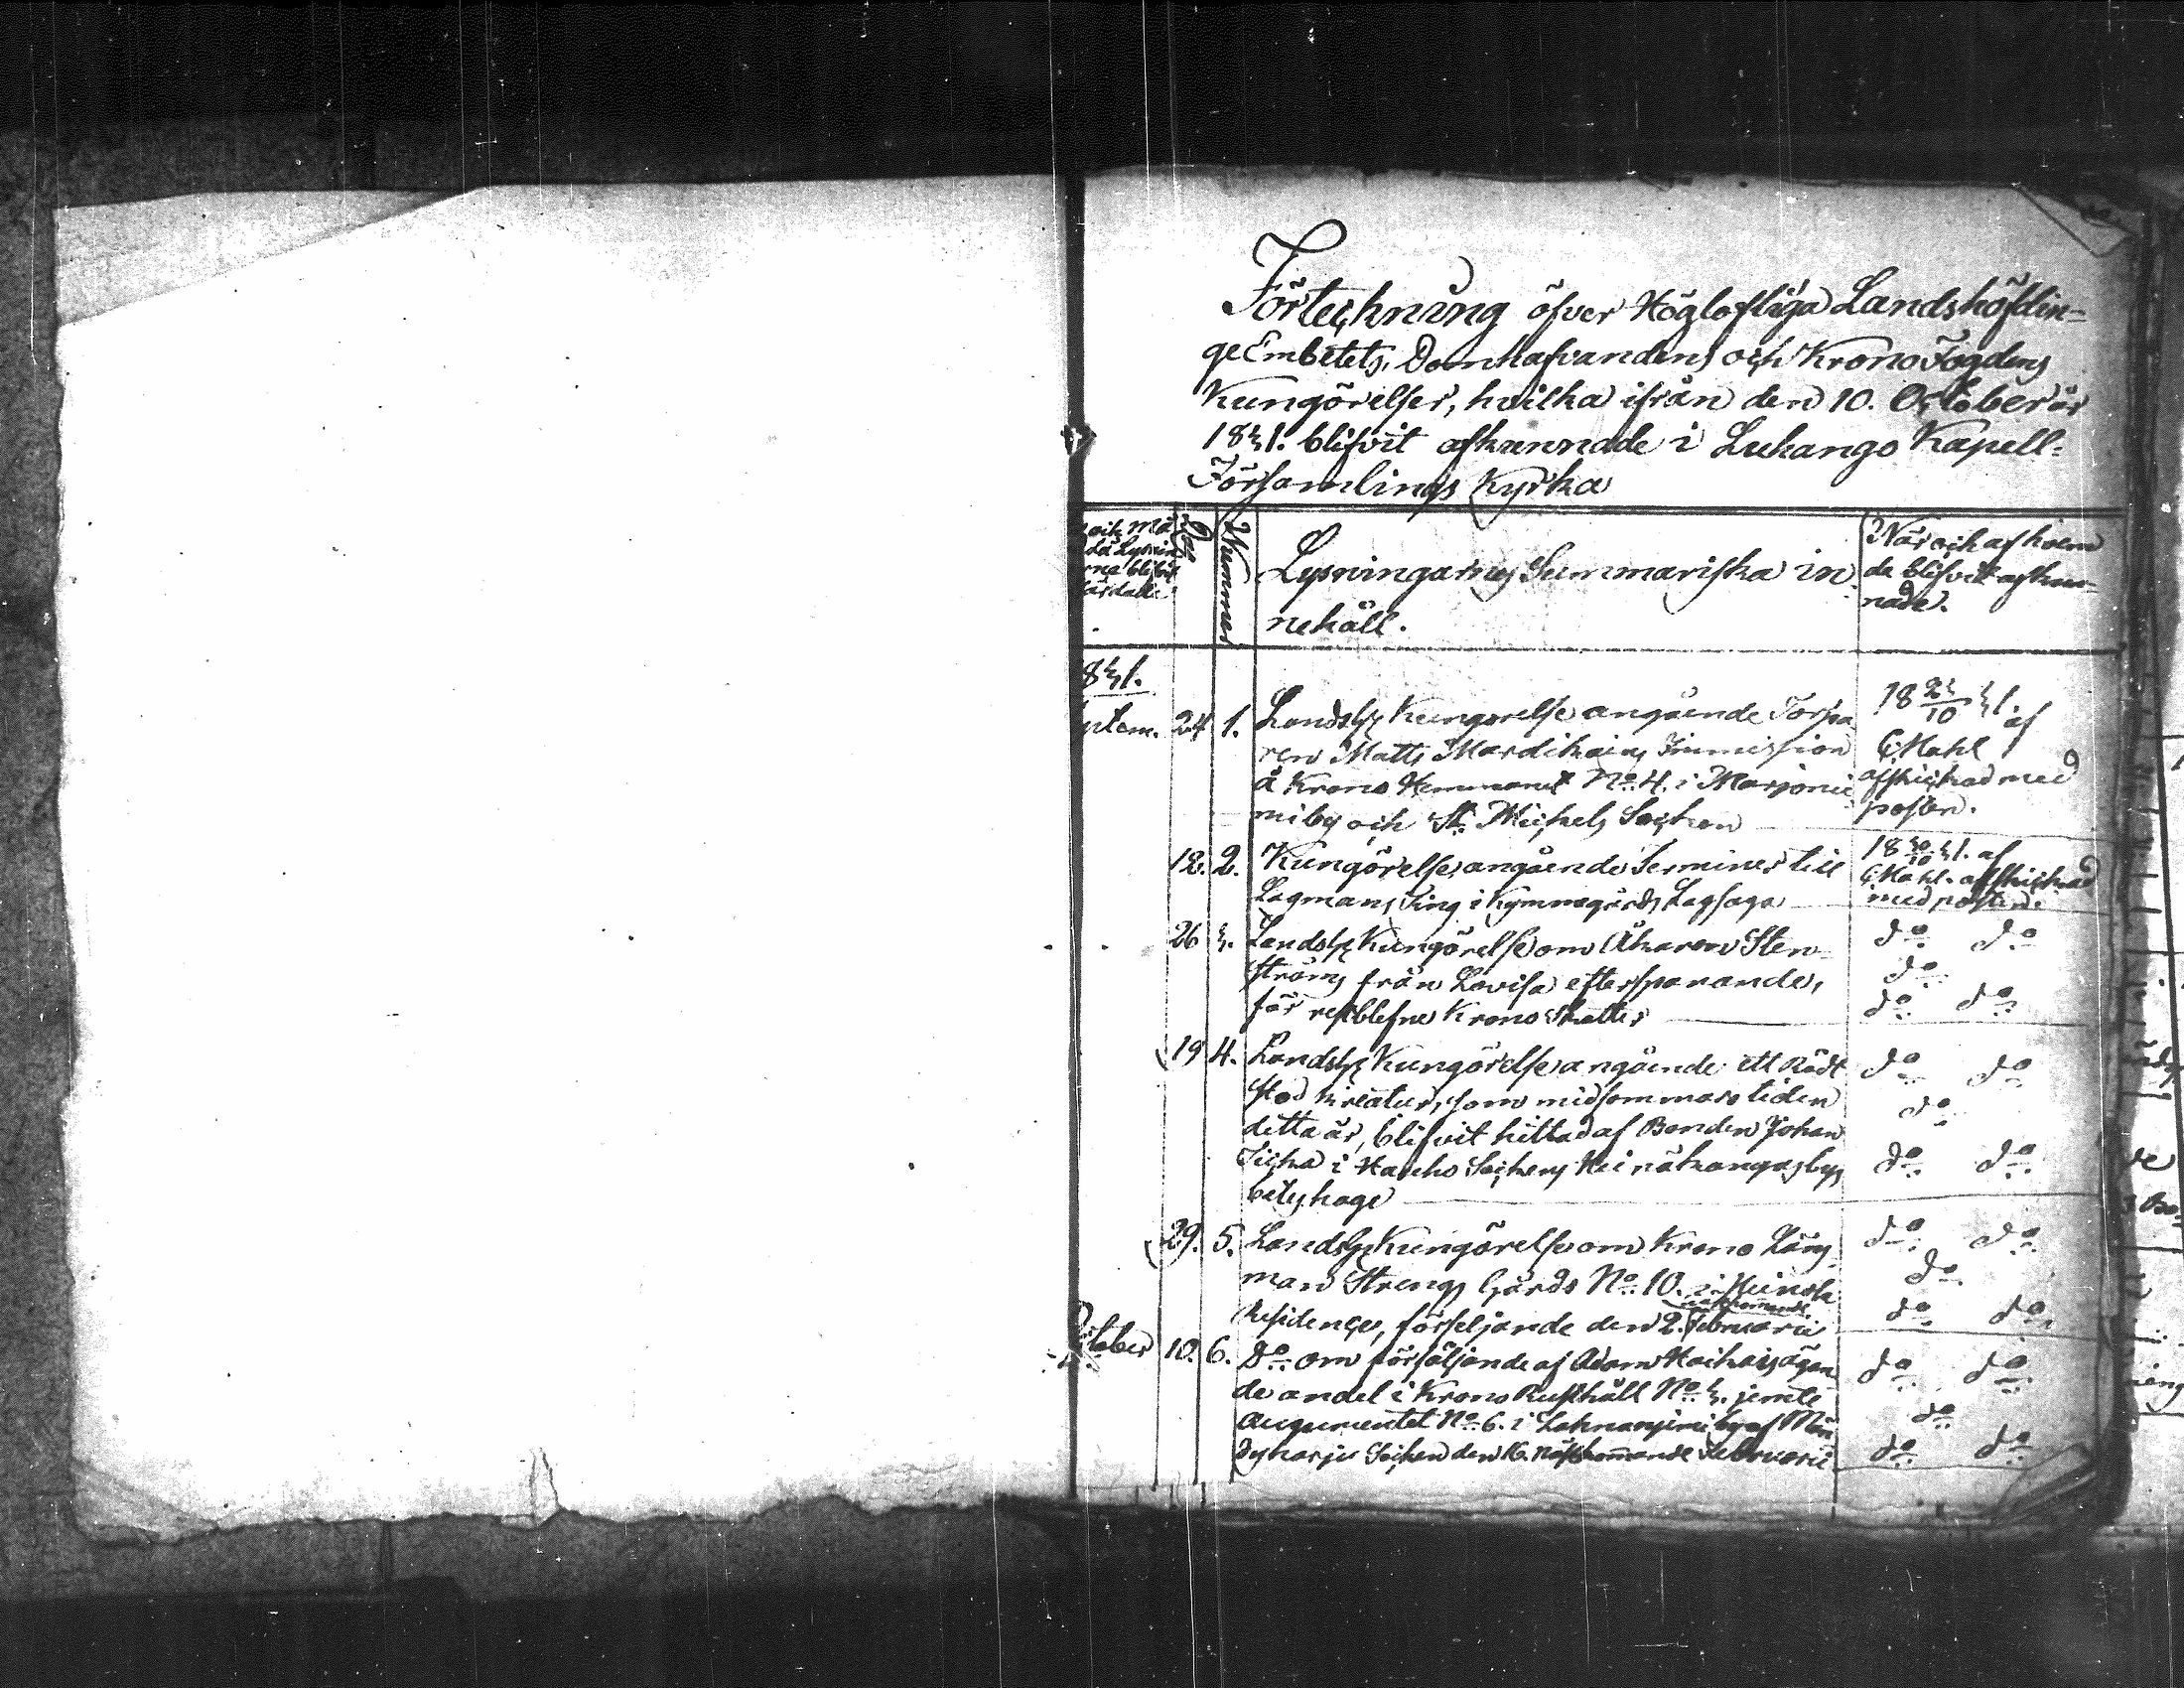 Förteckning öfver Höglofliga Landshöfdin=
ge Embetets, Domhafvandens och Krono Fogdens
Kungörelser, hvilka ifrån den 10. October år
1831. blifvit afkunnade i Luhango Kapell=
Församlings Kyrka
och Må
då Lysnin
rna blifvit
färdade
Dag
Nummer
Lysningarnes Summariska in=
nehåll.
När och af hvem
de blifvit afkun=
nade.
831.
ptem. 24 1. Landshgs Kungörelse angående Torpa
ren Matts Mardikains Immission
å Krono Hemmanet No. 4. i Marjonie
mi by och St. Michels Socken
18 23/10 31. af
C. Mahl
afskickad med
posten.
12. 2. Kungörelse angående Terminer till
Lagmans Ting i Kymmegårds Lagsaga
18 30/10 31. af
C. Mahl. afskickad
med posten.
26 3. Landshgs Kungörelse om Åkaren Sten=
ströms från Lovisa efterspanande,
för restblefne Krono Skatter
do do
do
do do
19 4. Landshgs Kungörelse angående ett Rödt
sto kreatur, som midsommars tiden
detta år, blifvit hittad af Bonden Johan
i Hauho Sockens Heinäkangas bys
beteshage
do do
do
do do
29. 5. Landshgs Kungörelse om Krono Läns
man Strengs Gårds No. 10. i Heinola
nästkommande
Residence, försäljande den 2. Februarii
do do
do
do do
October 10. 6. Do om försäljande af Adam Haikais ägan
de andel i Krono Rusthåll No. 3. jemte
augumentet No. 6. i by af Män
dyharju Socken den 16. nästkommande Februarii
do do
do
do do